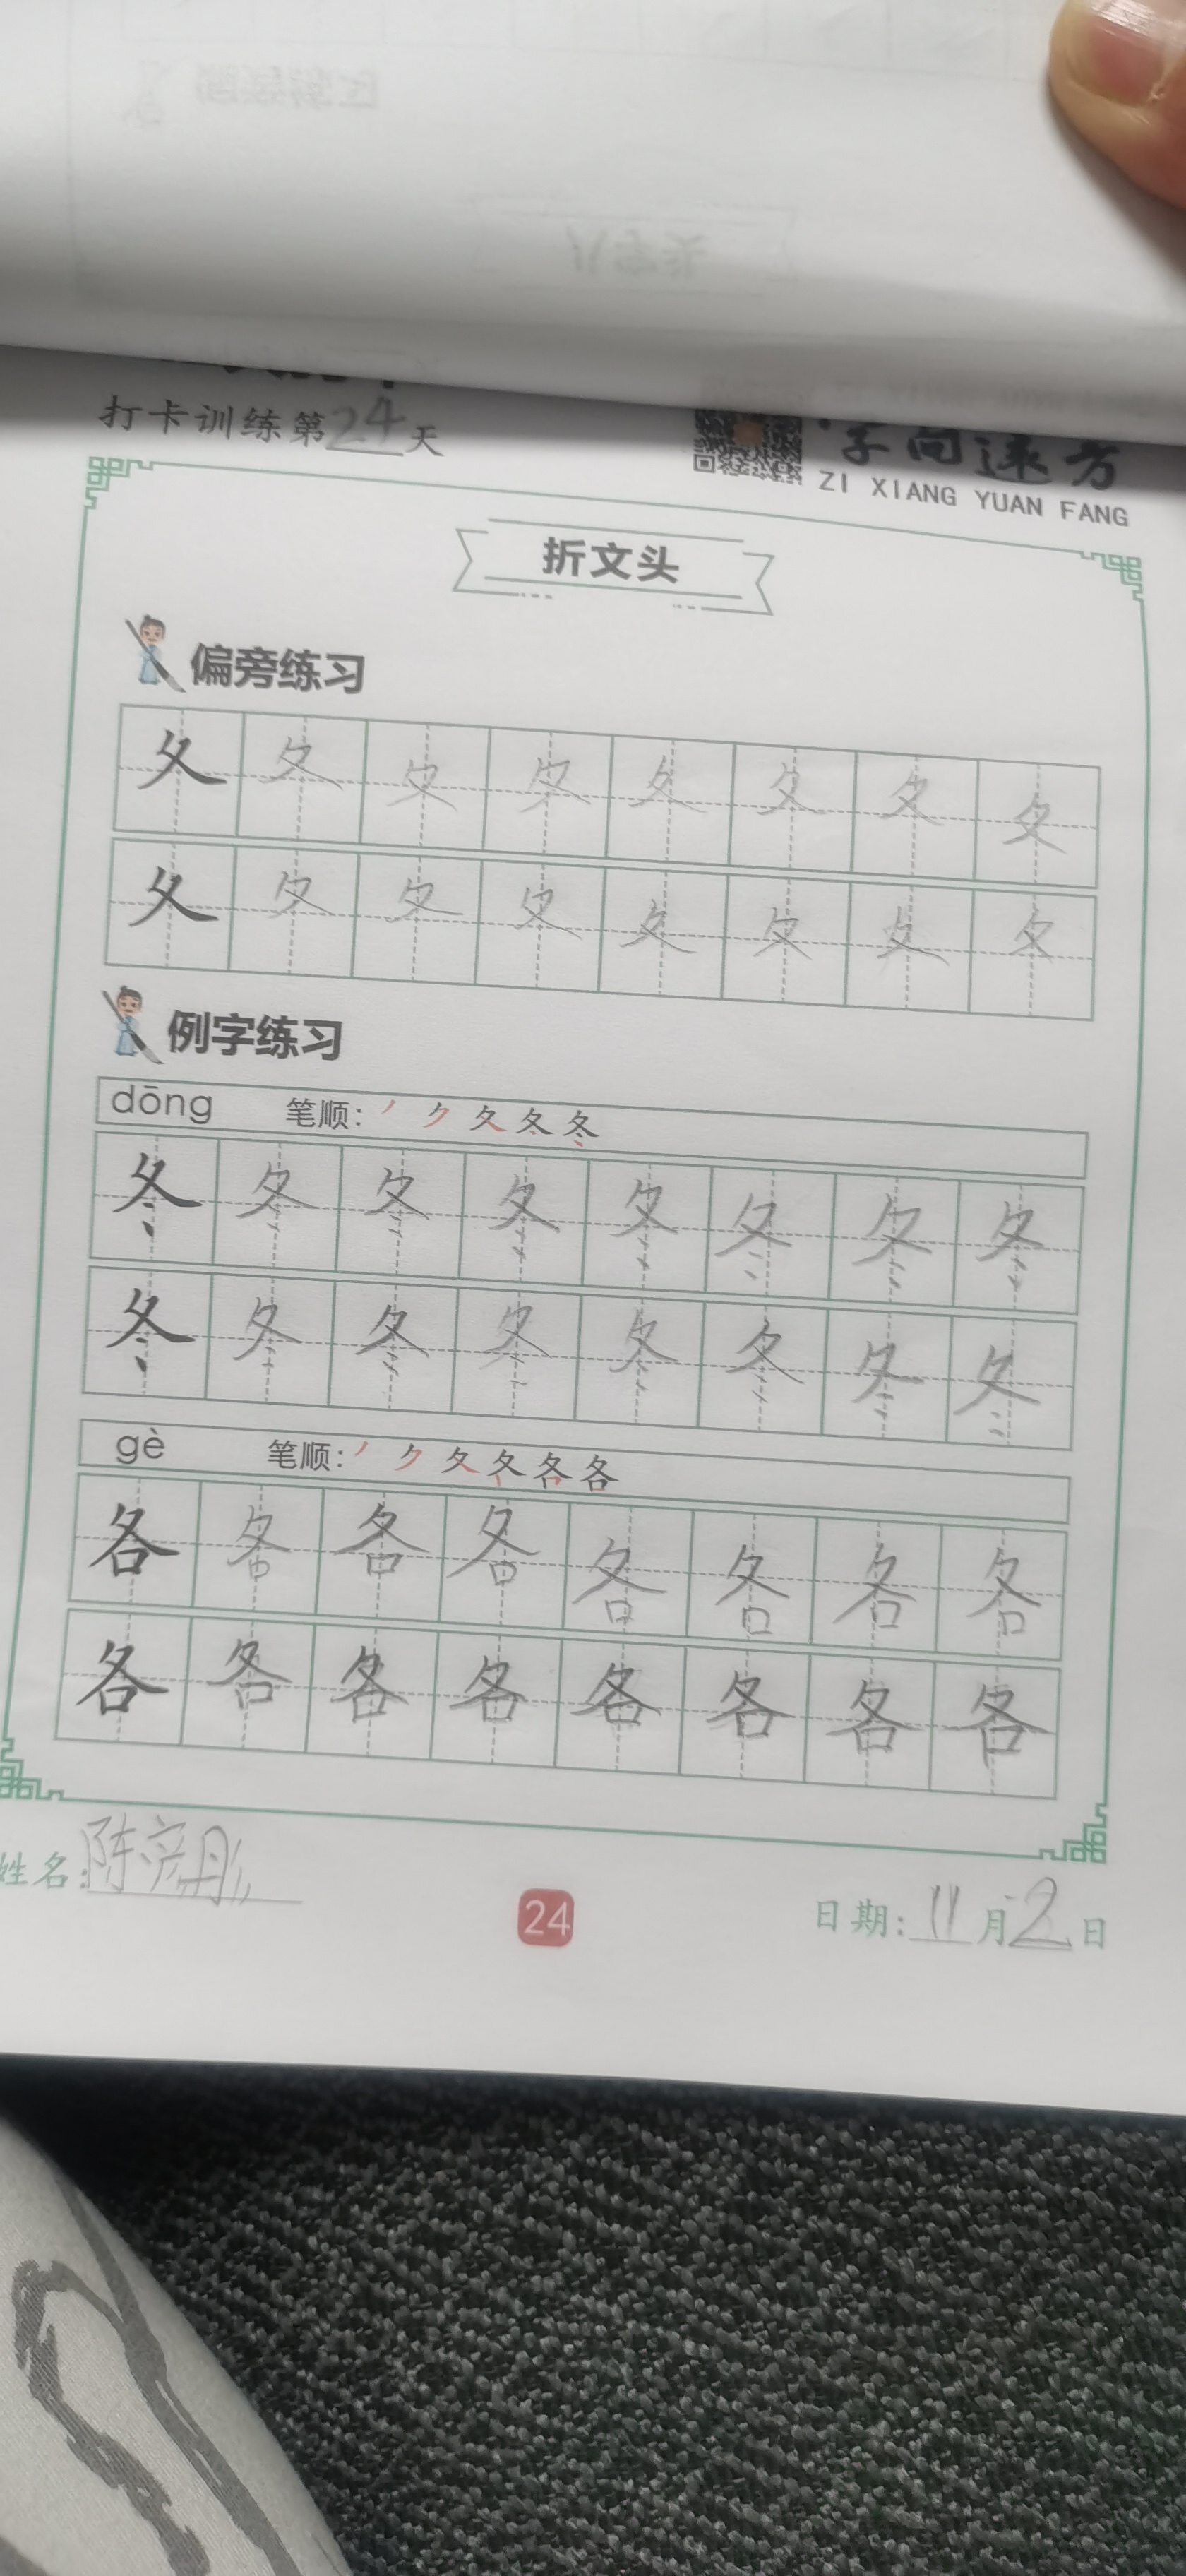 打卡训练第24天
字向远方
ZI XIANG YUAN FANG
折文头
偏旁练习
夂 夂 夂 夂 夂 夂 夂 夂
夂 夂 夂 夂 夂 夂 夂 夂
例字练习
dōng 笔顺: 丿 ク 夂 冬 冬
冬 冬 冬 冬 冬 冬 冬 冬
冬 冬 冬 冬 冬 冬 冬 冬
gè 笔顺: 丿 ク 夂 冬 各 各
各 各 各 各 各 各 各 各
各 各 各 各 各 各 各 各
姓名:陈彦彤
24
日期:11月2日